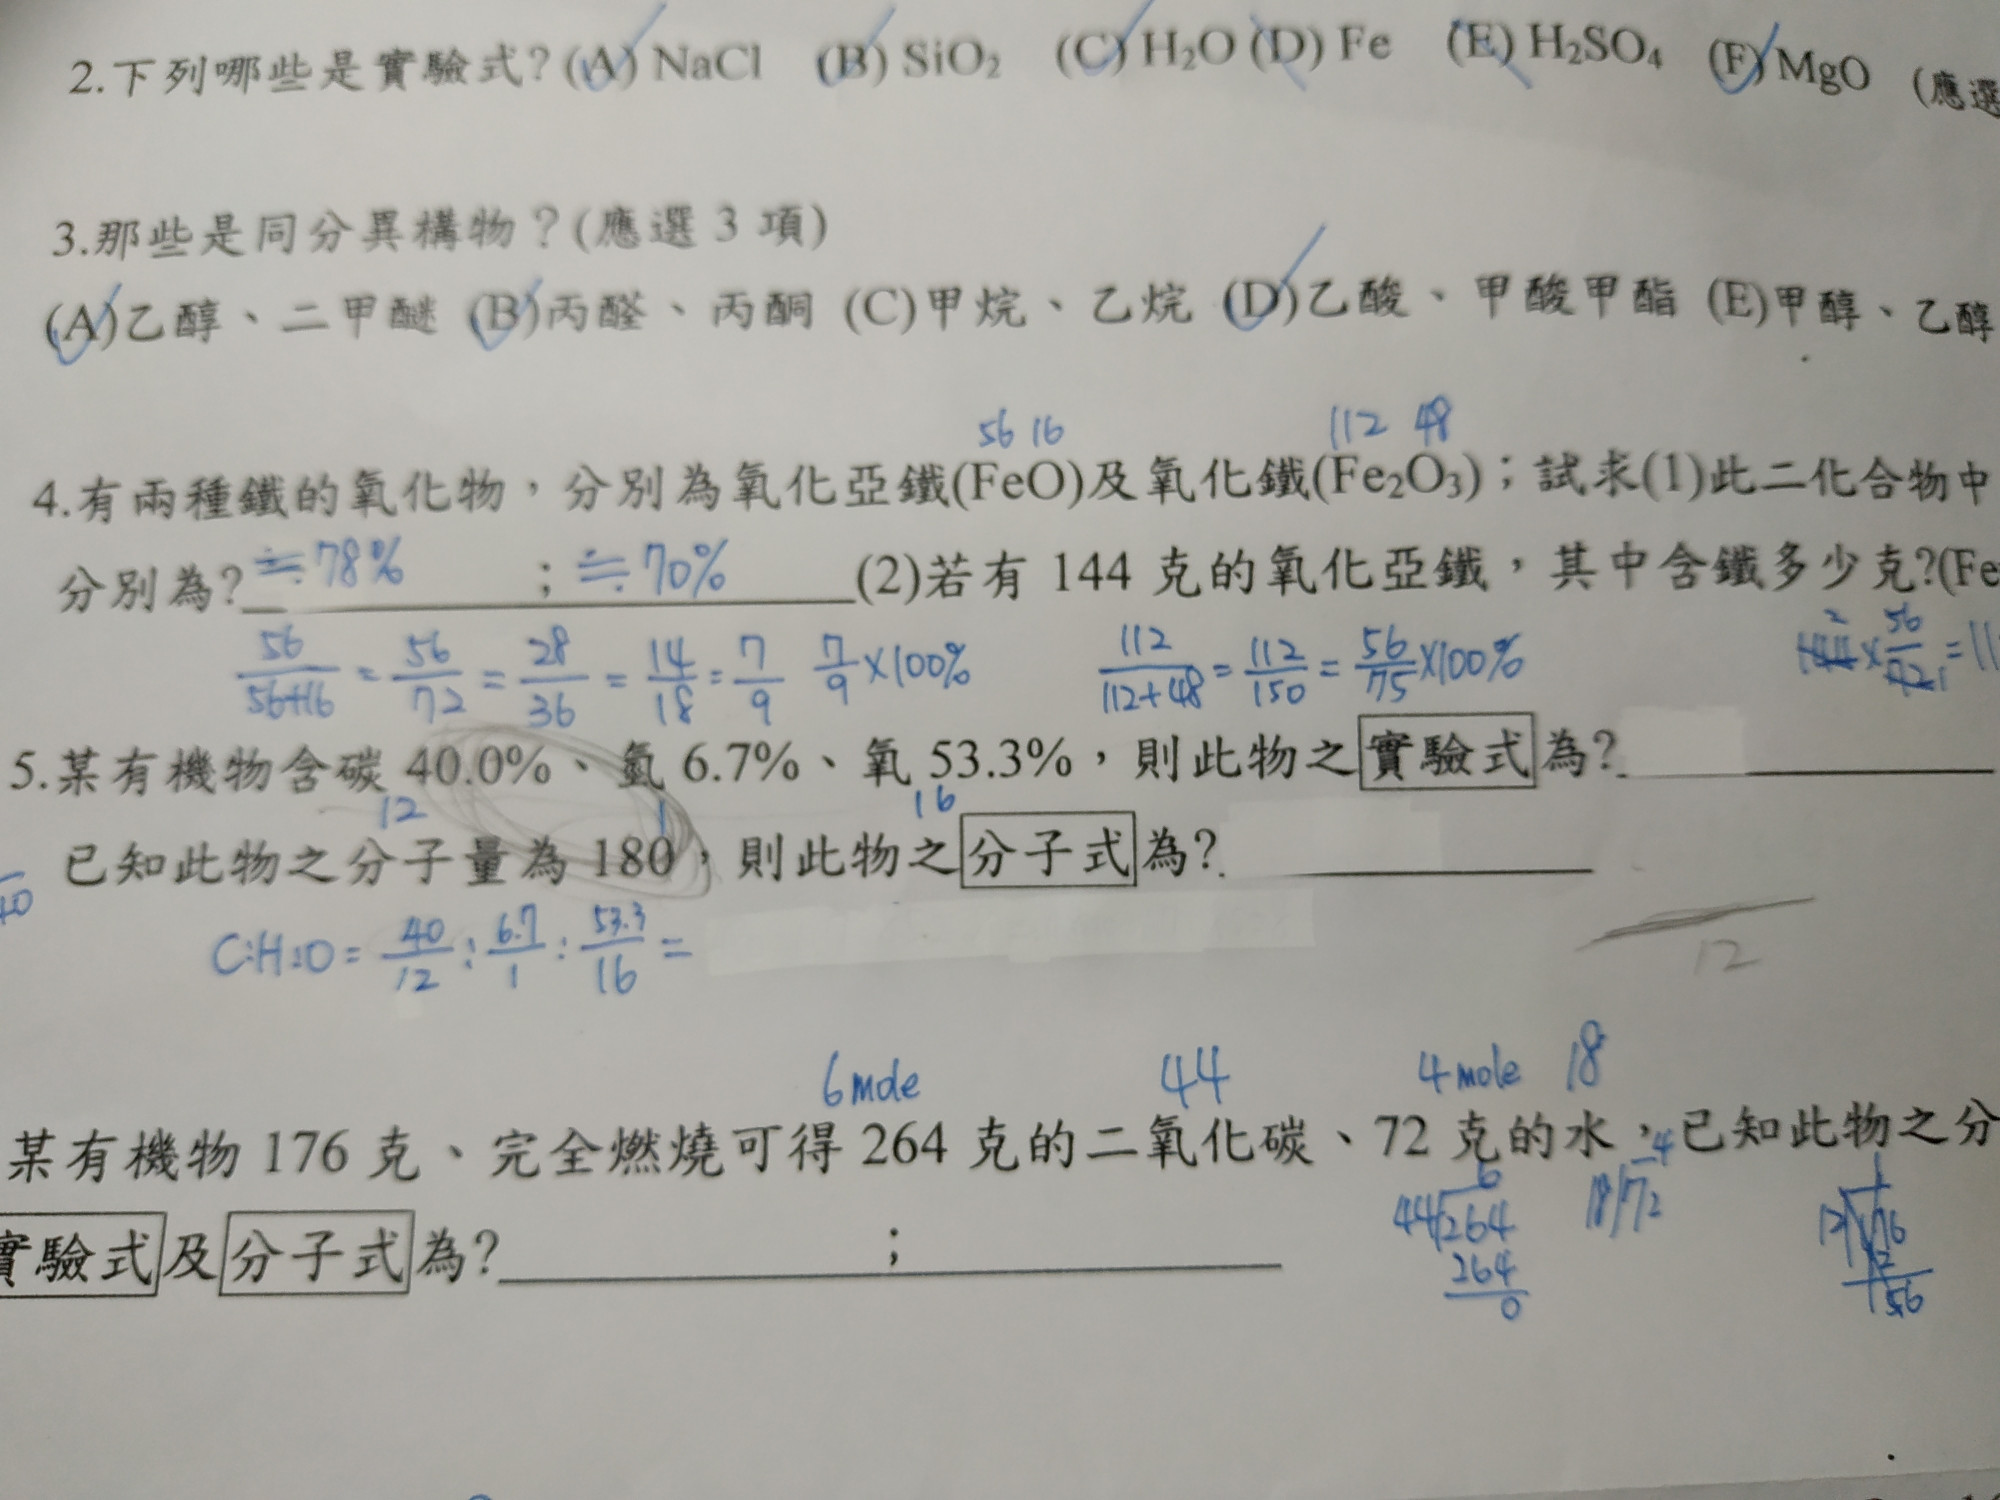 2.下列哪些是實驗式?(A) NaCl (B) SiO₂ (C) H₂O (D) Fe (E) H₂SO₄ (F) MgO (應選
3.那些是同分異構物？(應選 3 項)
(A)乙醇、二甲醚 (B)丙醛、丙酮 (C)甲烷、乙烷 (D)乙酸、甲酸甲酯 (E)甲醇、乙醇
56 16 112 48
4.有兩種鐵的氧化物，分別為氧化亞鐵(FeO)及氧化鐵(Fe₂O₃)；試求(1)此二化合物中
分別為? ≒78% ; ≒70% (2)若有 144 克的氧化亞鐵，其中含鐵多少克?(Fe
56/56+16 = 56/72 = 28/36 = 14/18 = 7/9 7/9 ×100% 112/112+48 = 112/150 = 56/75 ×100% 2 144 × 56/72 1 = 11
5.某有機物含碳 40.0%、氫 6.7%、氧 53.3%，則此物之實驗式為?
12 1 16
已知此物之分子量為 180，則此物之分子式為?
C:H:O = 40/12 : 6.7/1 : 53.3/16 =
12
6mole 44 4mole 18
某有機物 176 克、完全燃燒可得 264 克的二氧化碳、72 克的水，已知此物之分
實驗式及分子式為? ;
6 4 1
44 264 18 72 12 176
264 12
0 56